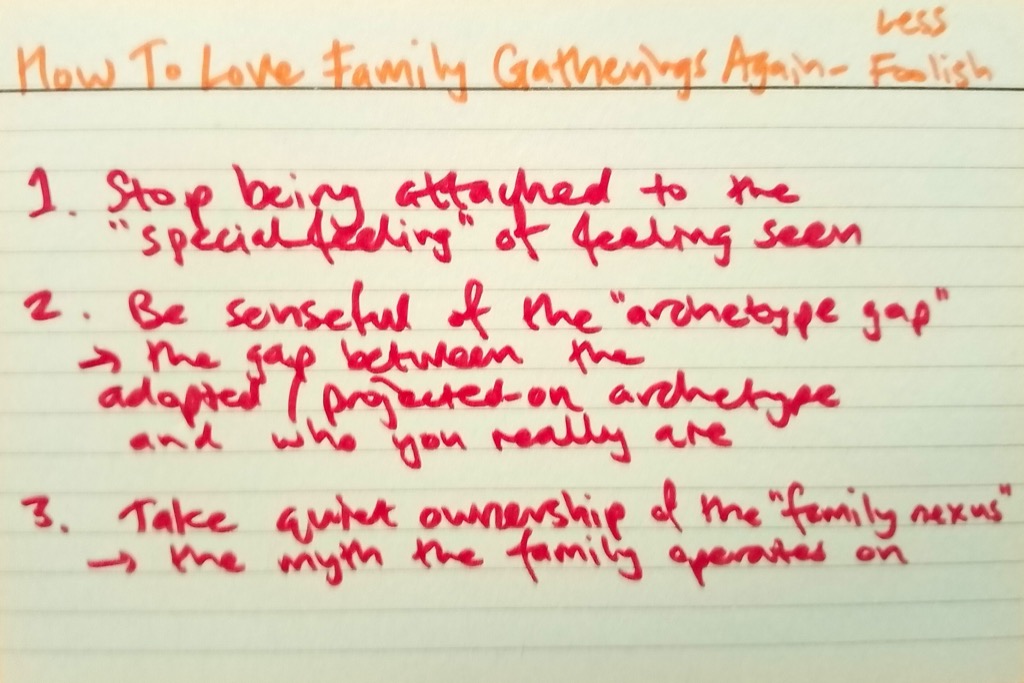 How To Love Family Gatherings Again - Less Foolish
1. Stop being attached to the
"special feeling" of feeling seen
2. Be senseful of the "archetype gap"
→ the gap between the
adopted / projected-on archetype
and who you really are
3. Take quiet ownership of the "family nexus"
→ the myth the family operates on